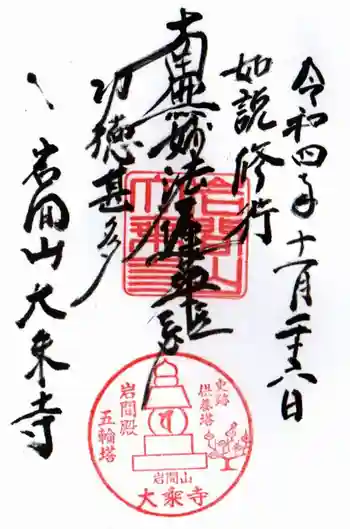 令和四年十一月二十八日
如説修行
南無妙法蓮華経
功徳甚多
岩間山大乗寺
史跡
供養塔
岩間殿
五輪塔
岩間山
大乗寺